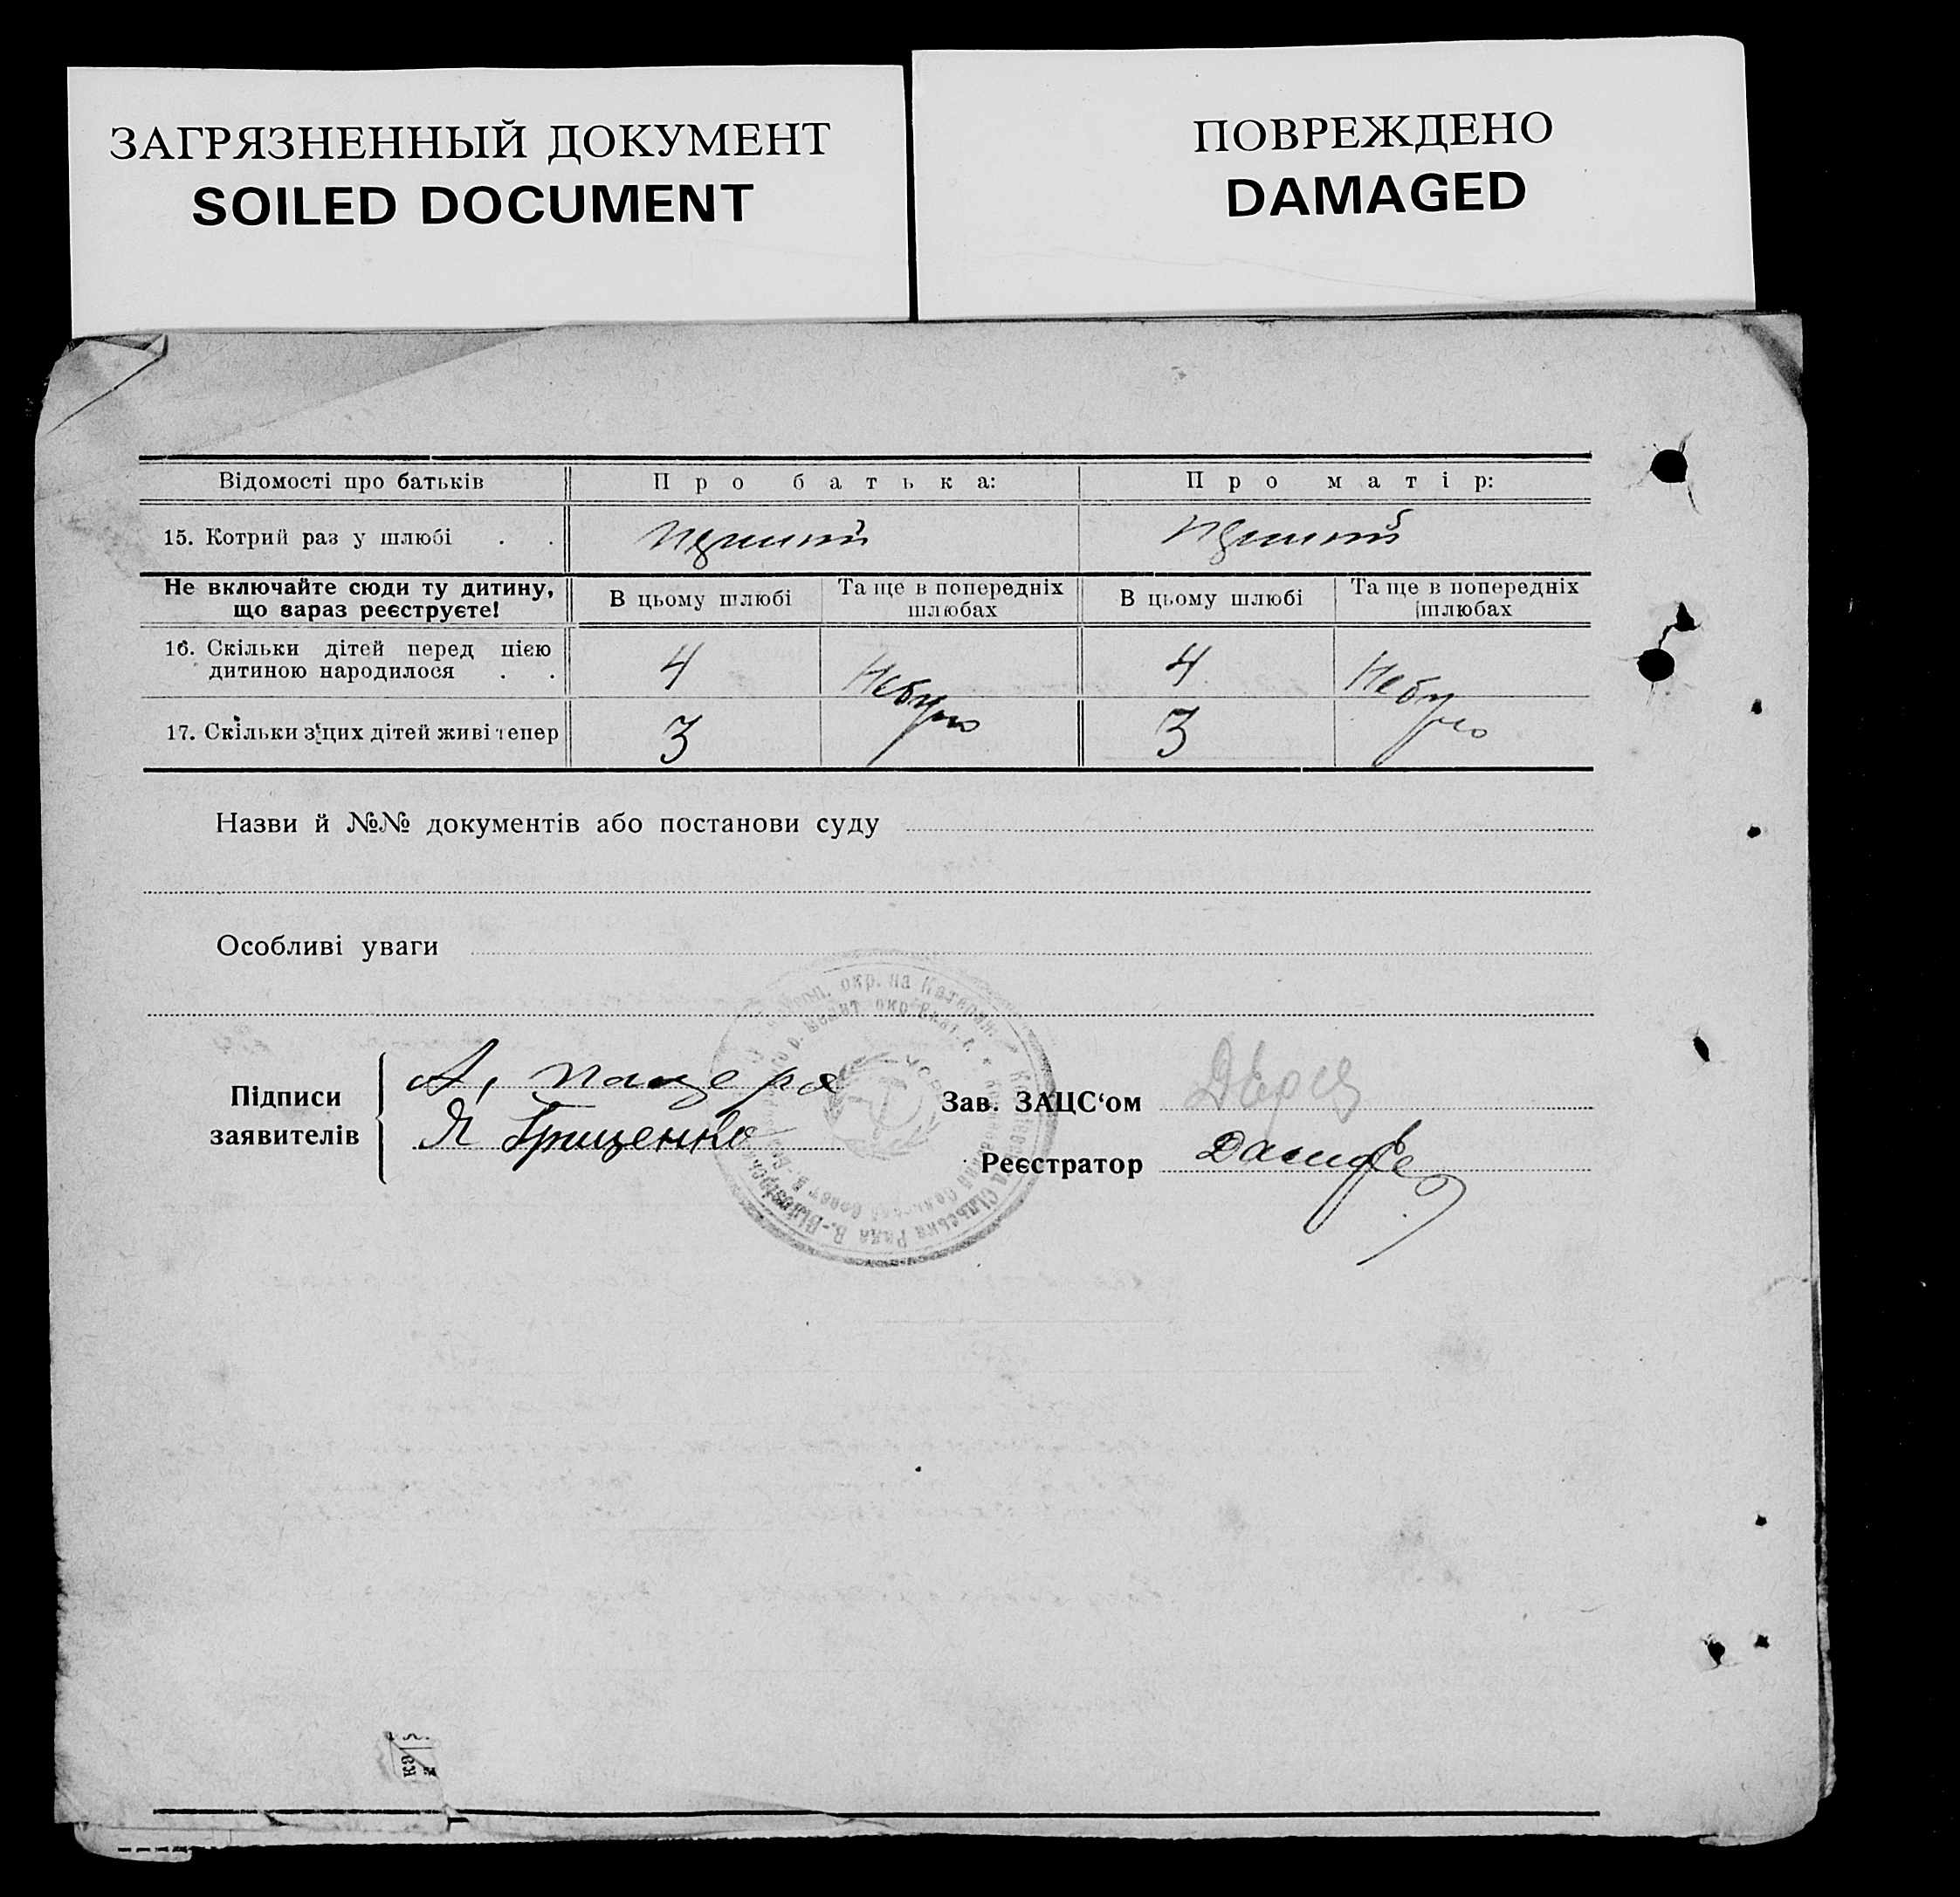 ЗАГРЯЗНЕННЫЙ ДОКУМЕНТ
SOILED DOCUMENT
ПОВРЕЖДЕНО
DAMAGED
Відомості про батьків Про батька: Про матір:
15. Котрий раз у шлюбі . . перший перший
Не включайте сюди ту дитину, що вараз реєструєте! В цьому шлюбі Та ще в попередніх шлюбах В цьому шлюбі Та ще в попередніх шлюбах
16. Скільки дітей перед цією дитиною народилося . . 4 Небуло 4 Небуло
17. Скільки з цих дітей живі тепер 3 3
Назви й №№ документів або постанови суду
Особливі уваги
Підписи заявителів
А,
Я Грищенко
Зав. ЗАЦС‘ом
Реєстратор
окр. на Катерин.
Сільська Рада В.-Білозірськ